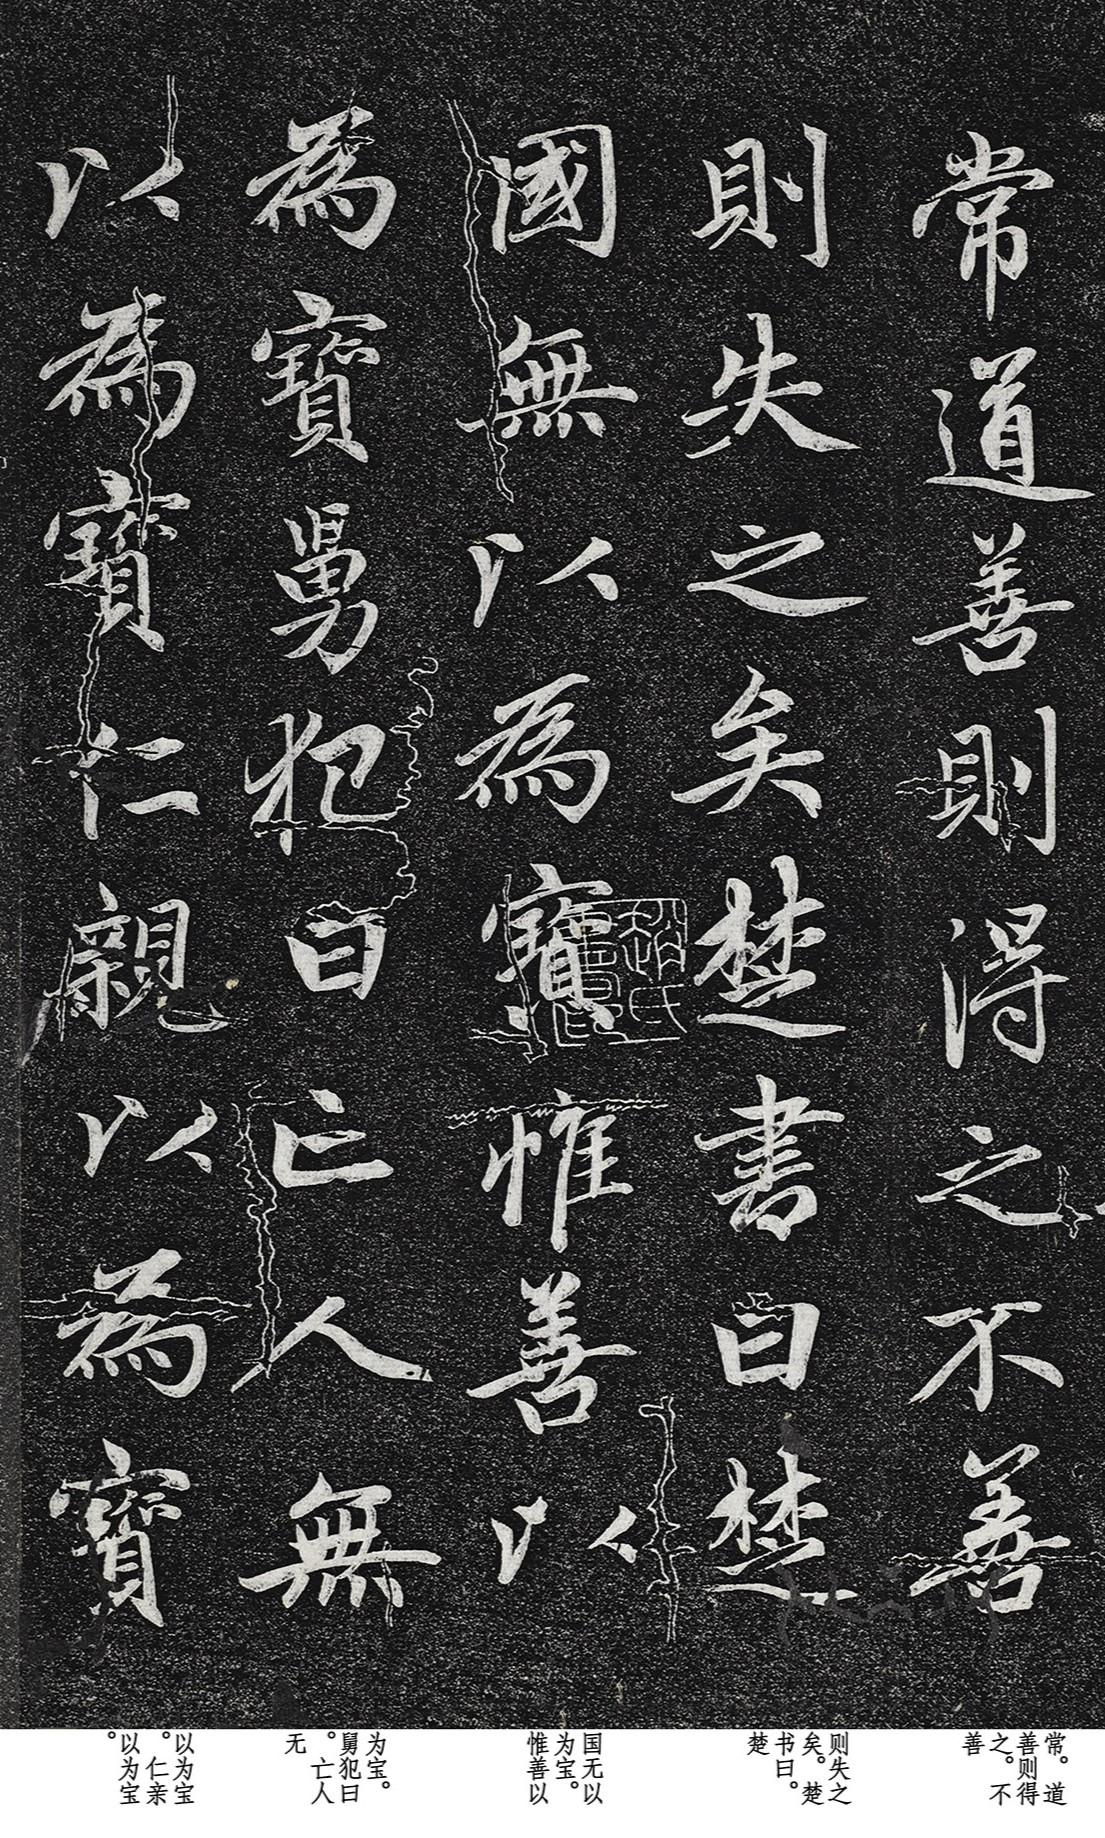 常道善則得之不善
則失之矣楚書曰楚
國無以為寶惟善以
為寶舅犯曰亡人無
以為寶仁親以為寶
常。道
善则得
之。不
善
则失之
矣。楚
书曰。
楚
国无以
为宝。
惟善以
为宝。
舅犯曰
。亡人
无
以为宝
。仁亲
以为宝
。